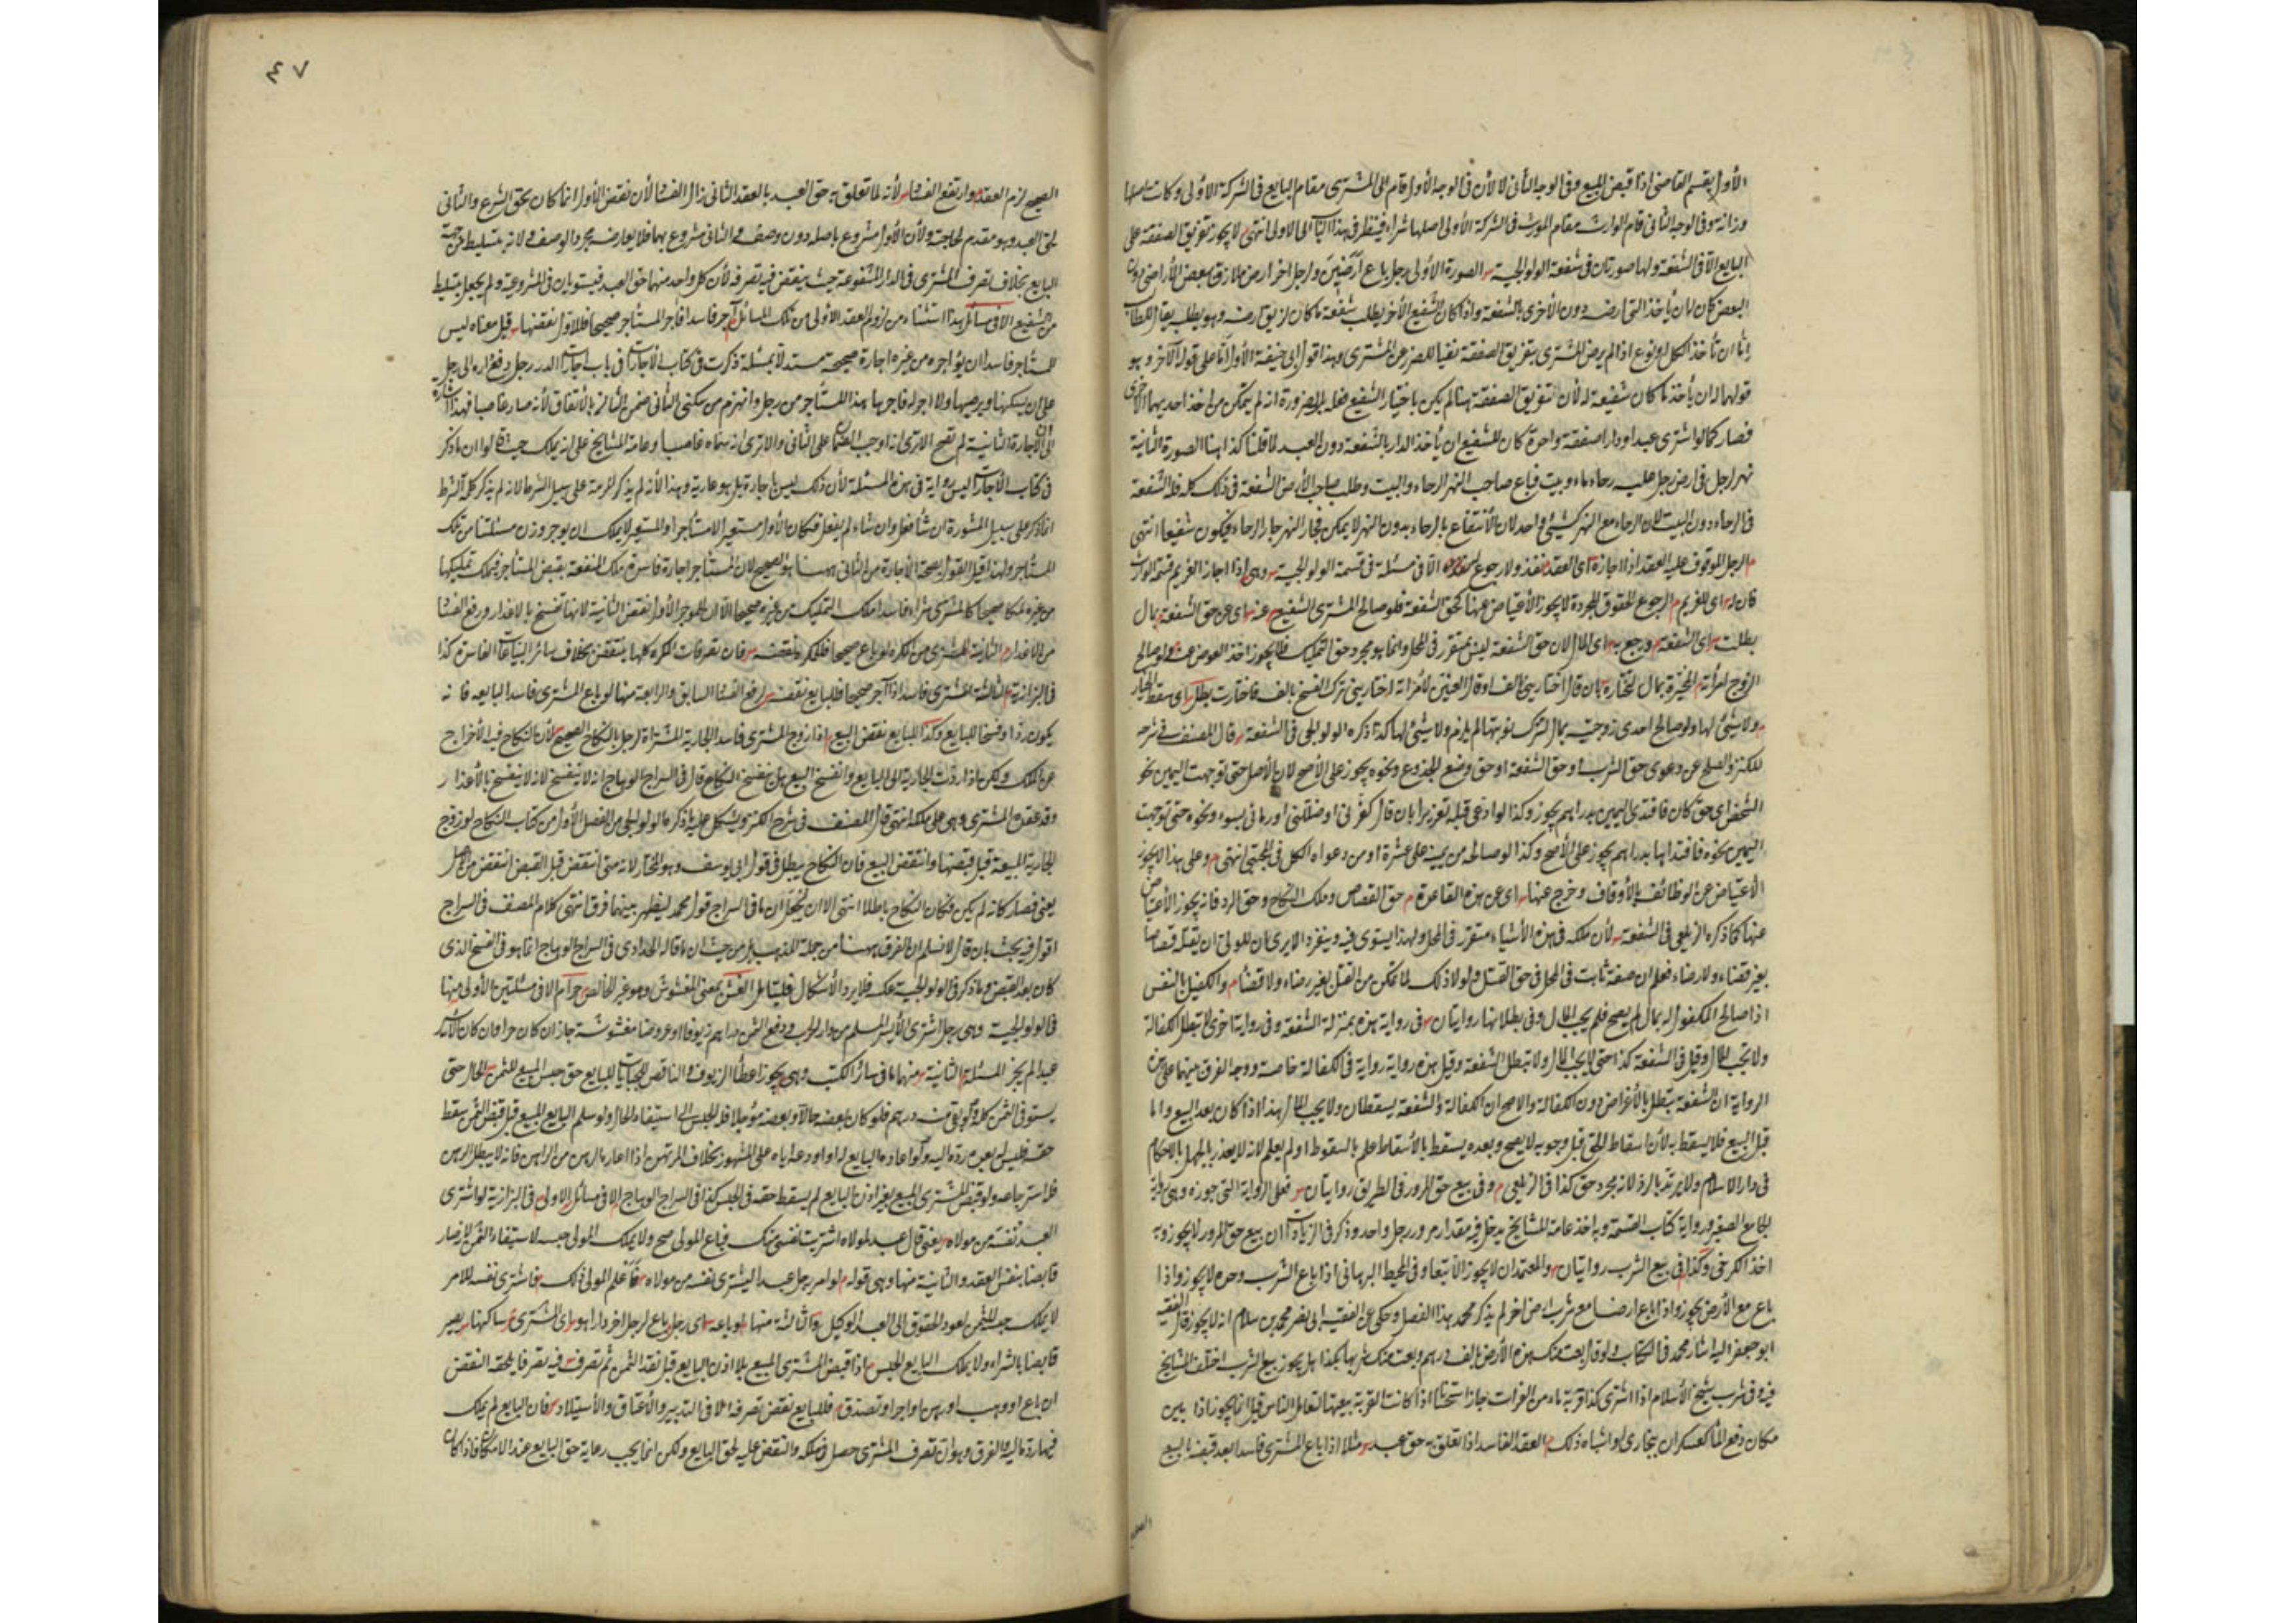 الأول يقسم القاضي اذا قبض المبيع وفي الوجه الثاني لا لأن في الوجه الأول قام المشترى مقام البايع في الشركة الأولى وكانت اصلها
وراثة وفي الوجه الثاني قام الوارث مقام المورث في الشركة الأولى اصلها شراء فينظر في هذا الباب الى الاولى انتهى لا يجوز تفريق الصفقة على
البايع الا في الشفعة ولها صورتان في شفعة الولوالجية الصورة الأولى رجل باع ارضين ولرجل اخر ارض ملازق ببعض الأراضي دون
البعض كان له ان يأخذ التي ارضه دون الأخرى بالشفعة واذا كان الشفيع الأخر يطلب شفعة ما كان لزيق ارضه وهو يطلب يقال للطالب
اما ان تأخذ الكل او تدع اذا لم يرض المشترى بتفريق الصفقة نفيا للضرر عن المشترى وهذا قول ابى حنيفة الأول اما على قوله الآخر وهو
قولهما له ان يأخذ ما كان شفيعة له لأن تفريق الصفقة هنا لم يكن باختيار الشفيع فعله بل ضرورة انه لم يتمكن من اخذ احديهما الأخرى
فصار كما لو اشترى عبدا ودارا صفقة واحدة كان للشفيع ان يأخذ الدار بالشفعة دون العبد لما قلنا كذا هنا الصورة الثانية
نهر لرجل في ارض رجل عليه رحاء ماء وبيت فباع صاحب النهر الرحاء والبيت وطلب صاحب الأرض الشفعة في ذلك كله فله الشفعة
في الرحاء دون البيت لان الرحاء مع النهر كشيء واحد لان الأنتفاع بالرحاء بدون النهر لا يمكن فجار النهر جار الرحاء فيكون شفيعا انتهى
م الرجل الموقوف عليه العقد اذا اجازه اى العقد نفذ ولا رجوع له الا في مسئلة في قسمة الولوالجية وهى اذا اجاز الغريم قسمة الوارث
فان له اى للغريم الرجوع الحقوق المجردة لا يجوز الأعتياض عنها كحق الشفعة فلو صالح المشترى الشفيع عنه اى عن حق الشفعة بمال
بطلت اى الشفعة ورجع به اى المال لان حق الشفعة ليس بمتقرر في المحل وانما هو مجرد حق التملك فلا يجوز اخذ العوض عنه ولو صالح
الزوج امرأته المخيرة بمال لتختاره بان قال اختاريني بألف او قال العنين لأمرأته اختاريني ترك الفسخ بألف فاختارت بطل اى سقط الخيار
ولا شيء لها ولو صالح احدى زوجتيه بمال لتترك نوبتها لم يلزم ولا شيء لها كذا ذكره الولوالجي في الشفعة قال المصنف في شرحه
للكنز والصلح عن دعوى حق الشرب او حق الشفعة او حق وضع الجذوع ونحوه يجوز على الأصح لان الأصل حتى توجهت اليمين نحو
الشخص اى حق كان فافتدى اليمين بدراهم يجوز وكذا لو ادعى قبله تعزيرا بان قال كفرنى او ضللني او رمانى بسوء ونحوه حتى توجهت
اليمين نحوه فافتداها بدراهم يجوز على الأصح وكذا لو صالحه من يمينه على عشرة او من دعواه الكل في المجتبى انتهى م وعلى هذا لا يجوز
الأعتياض عن الوظائف بالأوقاف وخرج عنها اى عن هذه القاعدة م حق القصاص وملك النكاح وحق الرد فانه يجوز الأعتياض
عنها كما ذكره الزيلعى في الشفعة لأن ملكه في هذه الأشياء متقرر في المحل ولهذا يستوى فيه وينفرد الا يرى ان للولى ان يقتله قصاصا
بغير قضاء ولا رضاء فعلم ان صفة ثابت في المحل في حق القتل ولولا ذلك لما تمكن من القتل بغير رضاء ولا قضاء م والكفيل بالنفس
اذا صالح المكفول له بمال لم يصح فلم يجب المال وفي بطلانها روايتان في رواية هذه بمنزلة الشفعة وفي رواية اخرى لا تبطل الكفالة
ولا يجب المال وقيل في الشفعة كذا حتى لا يجب المال ولا تبطل الشفعة وقيل هذه رواية رواية في الكفالة خاصة ووجه الفرق بينهما على هذه
الرواية ان الشفعة تبطل بالأعراض دون الكفالة والاصح ان الكفالة والشفعة يسقطان ولا يجب المال هذا اذا كان بعد البيع واما
قبل البيع فلا يسقط به لأن اسقاط الحق قبل وجوبه لا يصح وبعده يسقط بالأسقاط علم بالسقوط او لم يعلم لانه لا يعذر بالجهل بالاحكام
في دار الاسلام ولا يرتد بالرد لانه مجرد حق كذا في الزيلعى م وفي بيع حق المرور في الطريق روايتان فعلى الرواية التي جوزه وهى رواية
الجامع الصغير ورواية كتاب القسمة وبه اخذ عامة المشايخ يدخل فيه مقدار مرور رجل واحد وذكر في الزيادات ان بيع حق المرور لا يجوز وبه
اخذ الكرخى وكذا في بيع الشرب روايتان والمعتمد ان لا يجوز الا تبعا وفي المحيط البرهانى اذا باع الشرب وحده لا يجوز واذا
باع مع الأرض يجوز واذا باع ارضا مع شرب ارض اخر لم يذكر محمد هذا الفصل وحكى عن الفقيه ابى نصر محمد بن سلام انه لا يجوز قال الفقيه
ابو جعفر اليه اشار محمد في الكتاب ولو قال بعت منك هذه الأرض بالف درهم وبعت منك شربها بكذا هل يجوز بيع الشرب اختلف المشايخ
فيه وفي شرب شيخ الأسلام اذا اشترى كذا قربة ماء من الفرات جاز استحسانا اذا كانت القربة بعينها لتعامل الناس قيل انما يجوز اذا بين
مكان دفع الماء كعسكر ان بخارى او اشباه ذلك م العقد الفاسد اذا تعلق به حق عبد مثلا اذا باع المشترى فاسدا بعد قبضه البيع
الصحيح
٤٧
الصحيح لزم العقد وارتفع الفساد لأنه لما تعلق به حق العبد بالعقد الثانى زال الفساد لأن نقض الأول انما كان بحق الشرع والثانى
لحق العبد وهو مقدم لحاجته ولأن الأول مشروع باصله دون وصفه والثانى مشروع بهما فلا يعارضه مجرد الوصف ولانه بتسليط من جهة
البايع بخلاف تصرف المشترى في الدار المشفوعة حيث ينقض فيه تصرفه لأن كل واحد منهما حق العبد فيستويان في المشروعية ولم يجعل بتسليط
من الشفيع الا في مسائل هذا استثناء من لزوم العقد الأولى من تلك المسائل آجر فاسدا فآجر المستأجر صحيحا فللاول نقضها قيل معناه ليس
للمستأجر فاسدا ان يؤاجره من غيره اجارة صحيحة مستدلا بمسئلة ذكرت في كتاب الاجارات في باب اجارات الدور رجل دفع داره الى رجل
على ان يسكنها ويرمها ولا اجر له فآجرها هذا المستأجر من رجل وانهزم من سكنى الثانى ضمن الثانى بالاتفاق لأنه صار غاصبا فهذا اشارة
الى ان الاجارة الثانية لم تصح الا ترى انه اوجب الضمان على الثانى والا ترى انه سماه غاصبا وعامة المشايخ على انه يملك لو ان ما ذكر
في كتاب الاجارات ليس رواية في هذه المسئلة لأن ذلك ليس باجارة بل هو عارية وهذا لأنه لم يذكر المرمة على سبيل الشرط لانه لم يذكر كلمة الشرط
انما ذكر على سبيل المشورة ان شاء فعل وان شاء لم يفعل فكان الأول مستعيرا لا مستأجرا والمستعير لا يملك ان يوجر وزن مسئلتنا من تلك
المستأجر ولهذا قيل القول بصحة الأجارة من الثانى ههنا هو الصحيح لان المستأجر اجارة فاسدة ملك المنفعة بقبض المستأجر فيملك تمليكها
من غيره تمليكا صحيحا كالمشترى شراء فاسدا ملك التمليك من غيره صحيحا الا ان للموجر الأول نقض الثانية لانها تفسخ بالاعذار ورفع الفساد
من الاعذار الثانية المشترى من المكره لو باع صحيحا فللمكره نقضه فان تصرفات المكره كلها ينتقض بخلاف سائر البياعات الفاسدة كذا
في البزازية الثالثة المشترى فاسدا اذا آجر صحيحا فللبايع نقضه لرفع الفساد السابق والرابعة منها لو باع المشترى فاسدا لبايعه فانه
يكون ردا وفسخا للبيع وكذا للبايع نقض البيع اذا زوج المشترى فاسدا الجارية المشتراة لرجل بالنكاح الصحيح لأن النكاح فيه الأخراج
عن الملك ولكن اذا ردت الجارية الى البايع وانفسخ البيع هل ينفسخ النكاح قال في السراج الوهاج انه لا ينفسخ لانه لا ينفسخ بالأعذار
وقد عقده المشترى وهى على ملكه انتهى قال المصنف في شرح الكنز ويشكل عليه ما ذكره الولوالجي من الفصل الأول من كتاب النكاح لو زوج
الجارية المبيعة قبل قبضها وانتقض البيع فان النكاح يبطل في قول ابى يوسف وهو المختار لانه متى انتقض قبل القبض انتقض من الأصل
يعنى فصار كانه لم يكن فكان النكاح باطلا انتهى الا ان يحمل ان ما في السراج قول محمد ليظهر بينهما فرق انتهى كلام المصنف في السراج
اقول فيه بحث بان قال لا نسلم ان الفرق ههنا من جملة المذهب بل من حيث ان ما قاله الحدادى في السراج الوهاج انما هو في الفسخ الذى
كان بعد القبض وما ذكر في الولوالجية عكسه فلا يرد الأشكال فليتأمل الغش بمعنى المغشوش وهو غير الخالص حرام الا في مسئلتين الأولى منها
في الولوالجية وهى رجل اشترى الأسير المسلم من دار الحرب ودفع الثمن دراهم زيوفا او عروضا مغشوشة جاز ان كان حرا فان كان الأسير
عبدا لم يجز المسئلة الثانية منهما ما في سائر الكتب وهى يجوز اعطاء الزيوف والناقص للجبايات للبايع حق حبس المبيع للثمن الحال حتى
يستوفى الثمن كله ولو بقى منه درهم فلو كان بعضه حالا وبعضه مؤجلا فله الحبس الى استيفاء الحال ولو سلم البايع المبيع قبل قبض الثمن سقط
حقه فليس له بعده رده اليه ولو اعاده البايع له او اودعه اياه على المشهور بخلاف المرتهن اذا اعار الرهن من الراهن فانه لا يبطل الرهن
فله استرجاعه ولو قبض المشترى المبيع بغير اذن البايع لم يسقط حقه في الحبس كذا في السراج الوهاج الا في مسائل الاولى في البزازية لو اشترى
العبد نفسه من مولاه يعنى قال عبد لمولاه اشتريت نفسى منك فباع المولى صح ولا يملك المولى حبسه لاستيفاء الثمن لانه صار
قابضا بنفس العقد والثانية منها وهى قوله م لو امر رجل عبدا ليشترى نفسه من مولاه فاعلم المولى ذلك فاشترى نفسه للامر
لا يملك حبسه للثمن لعود الحقوق الى العبد الوكيل والثالثة منها لو باعه اى رجل باع لرجل اخر دارا هو اى المشترى ساكنها يصير
قابضا بالشراء ولا يملك البايع الحبس اذا قبض المشترى المبيع بلا اذن البايع قبل نقد الثمن ثم تصرف فيه تصرفا يلحقه النقض
ان باع او وهب او رهن او اجر او تصدق فللبايع نقض تصرفه الا في التدبير والأعتاق والأستيلاد فان البايع لم يملك
فيها رد ماليه والفرق هو ان تصرف المشترى حصل في ملكه والنقض عليه لحق البايع ولكن انما يجب رعاية حق البايع عند الامكان فاذا كان